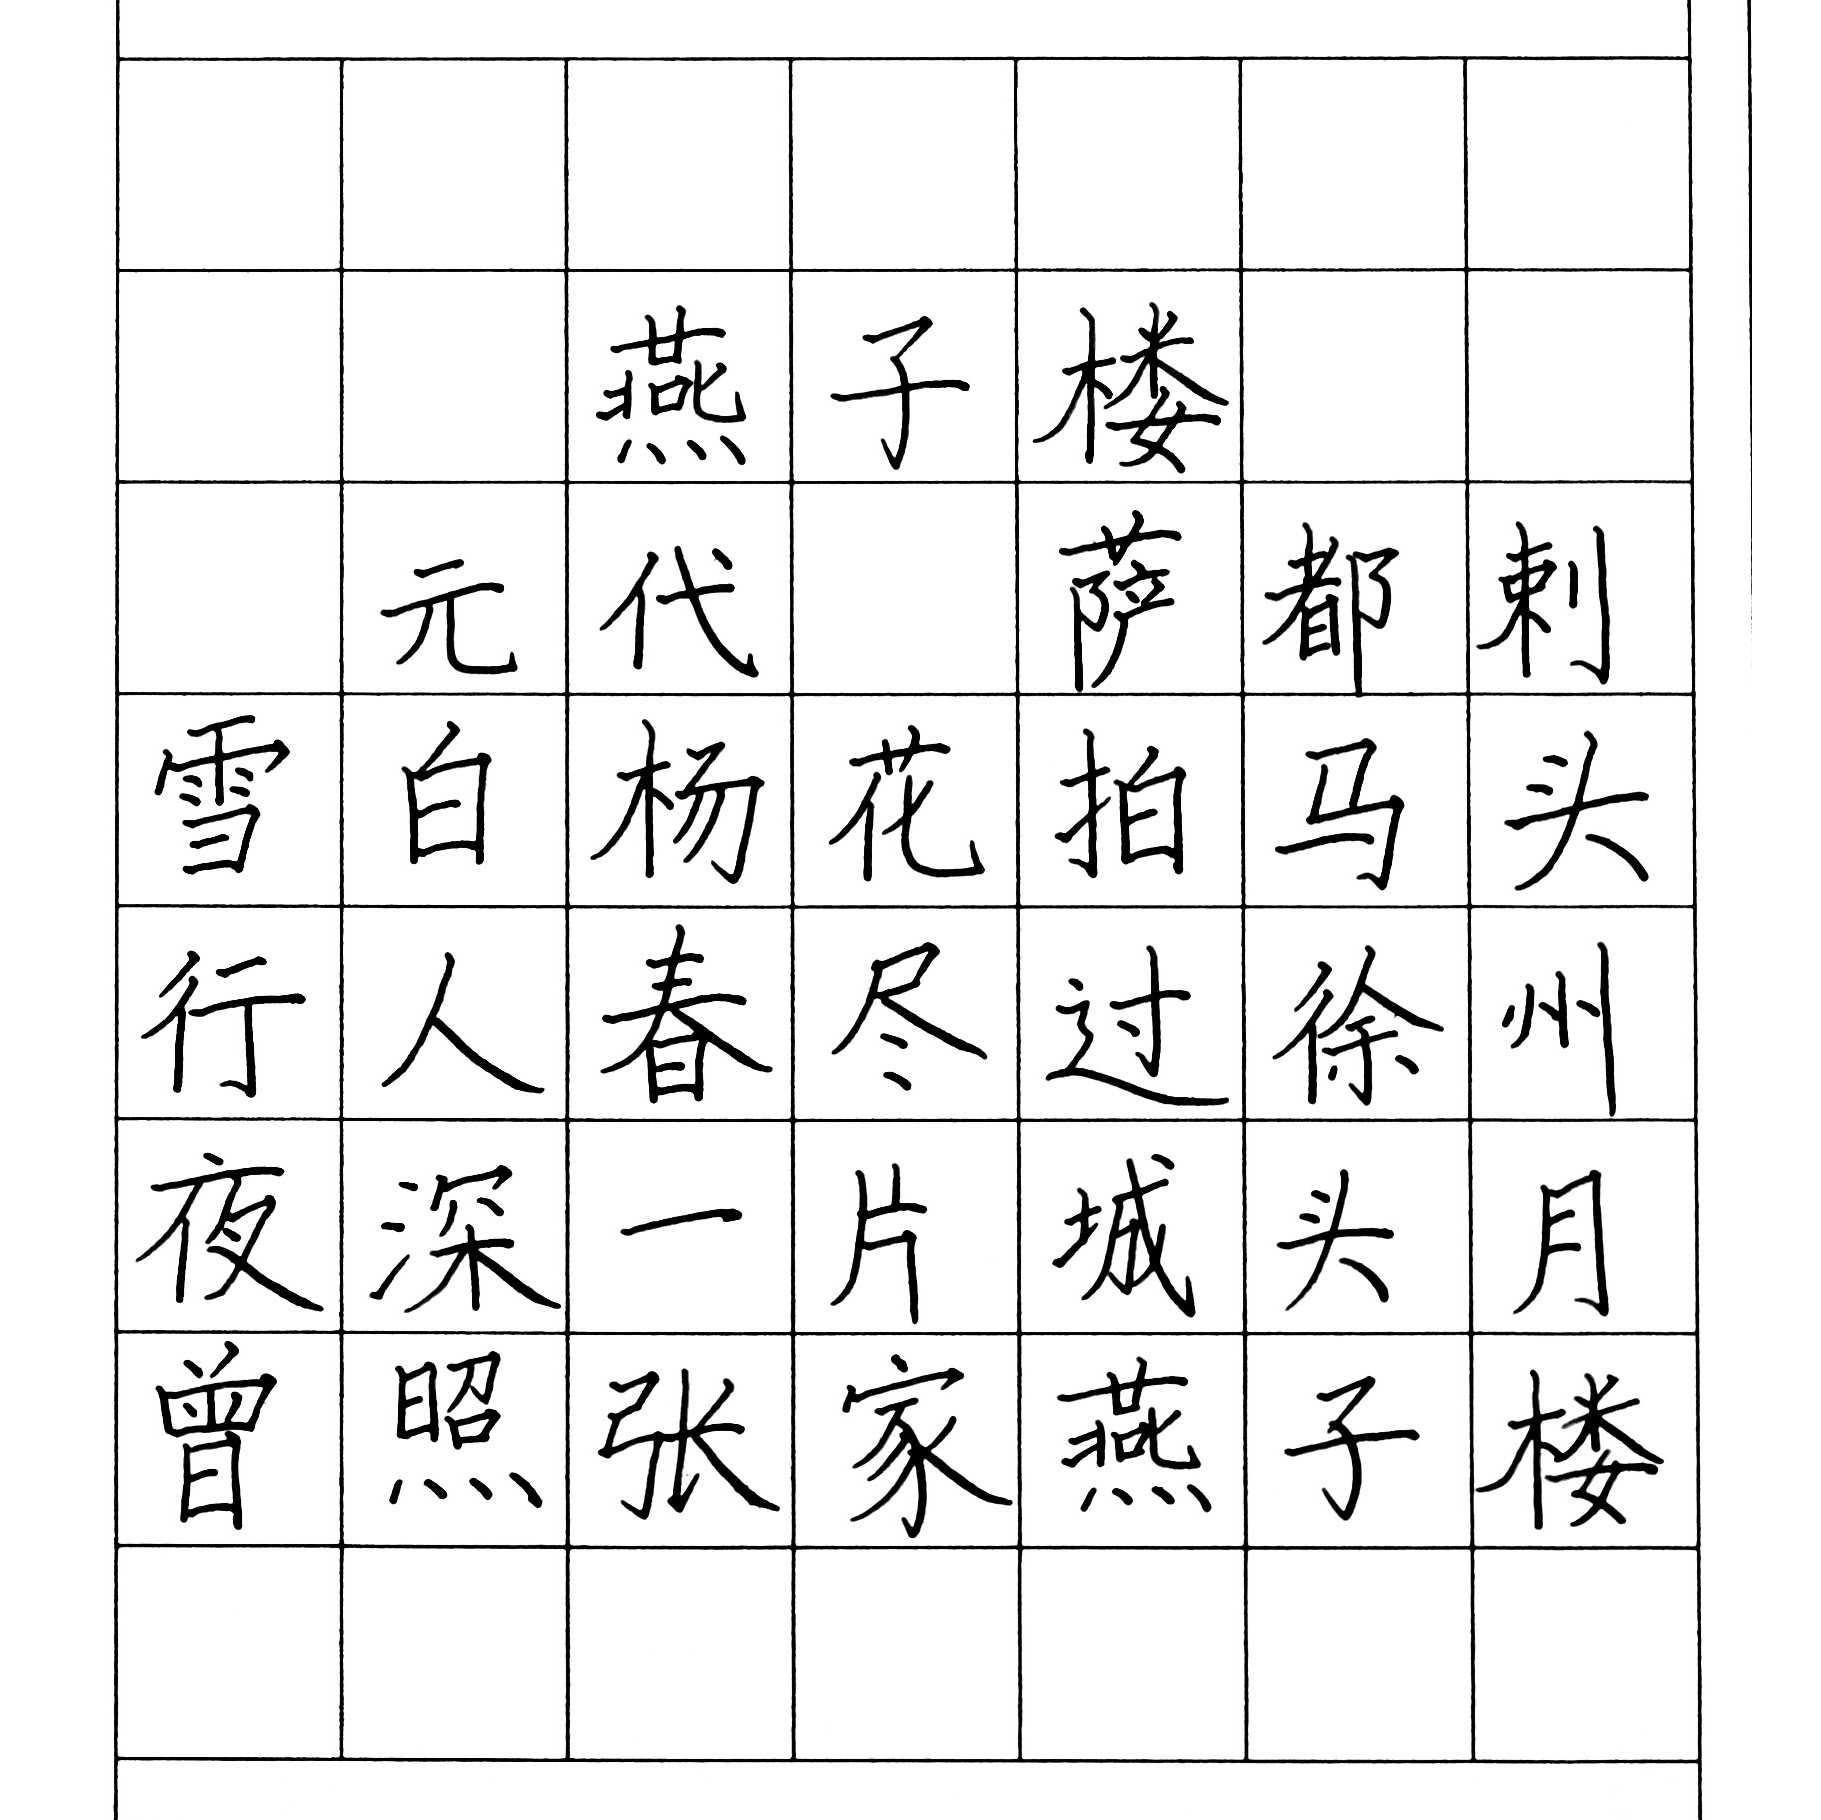 燕子楼
元代 萨都剌
雪白杨花拍马头
行人春尽过徐州
夜深一片城头月
曾照张家燕子楼